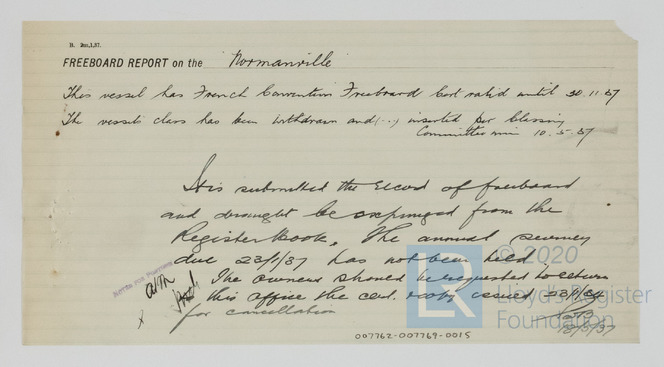 B. 2m,1,37.
FREEBOARD REPORT on the Normanville
This vessel has French Convention Freeboard Cert valid until 30.11.37
The vessel's class has been withdrawn and (...) inserted per Classing
Committee min 10.5.37
It is submitted the record of freeboard
and draught be expunged from the
Register Book. The annual survey
due 23/1/37 has not been held
The owners should be requested to return
to this office the cert. issued 23/1/34
for cancellation
NOTED FOR
X
18/5/37
007762-007769-0015
© 2020
LR
Lloyd's Register
Foundation